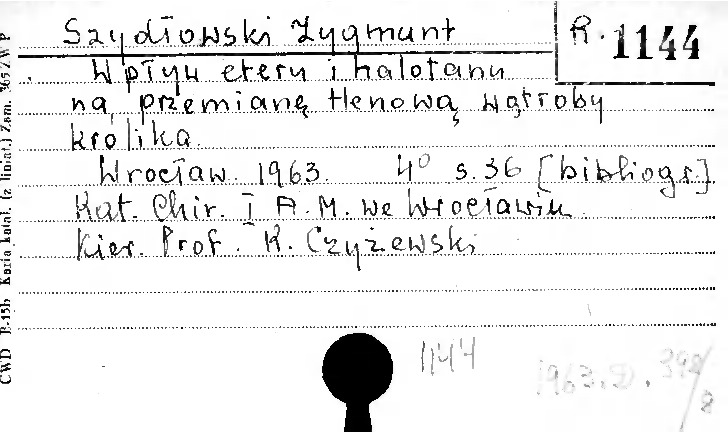 Szydłowski Zygmunt
R. 1144
Wpływ eteru i halotanu
na przemianę tlenową wątroby
królika.
Wrocław. 1963. 4° s. 36 [bibliogr.]
Kat. Chir. I A.M. we Wrocławiu
Kier. Prof. K. Czyżewski
1144
1963. D. 398/8
CWD D-15b Karta katal. (z liniat.) Zam. 365/WP